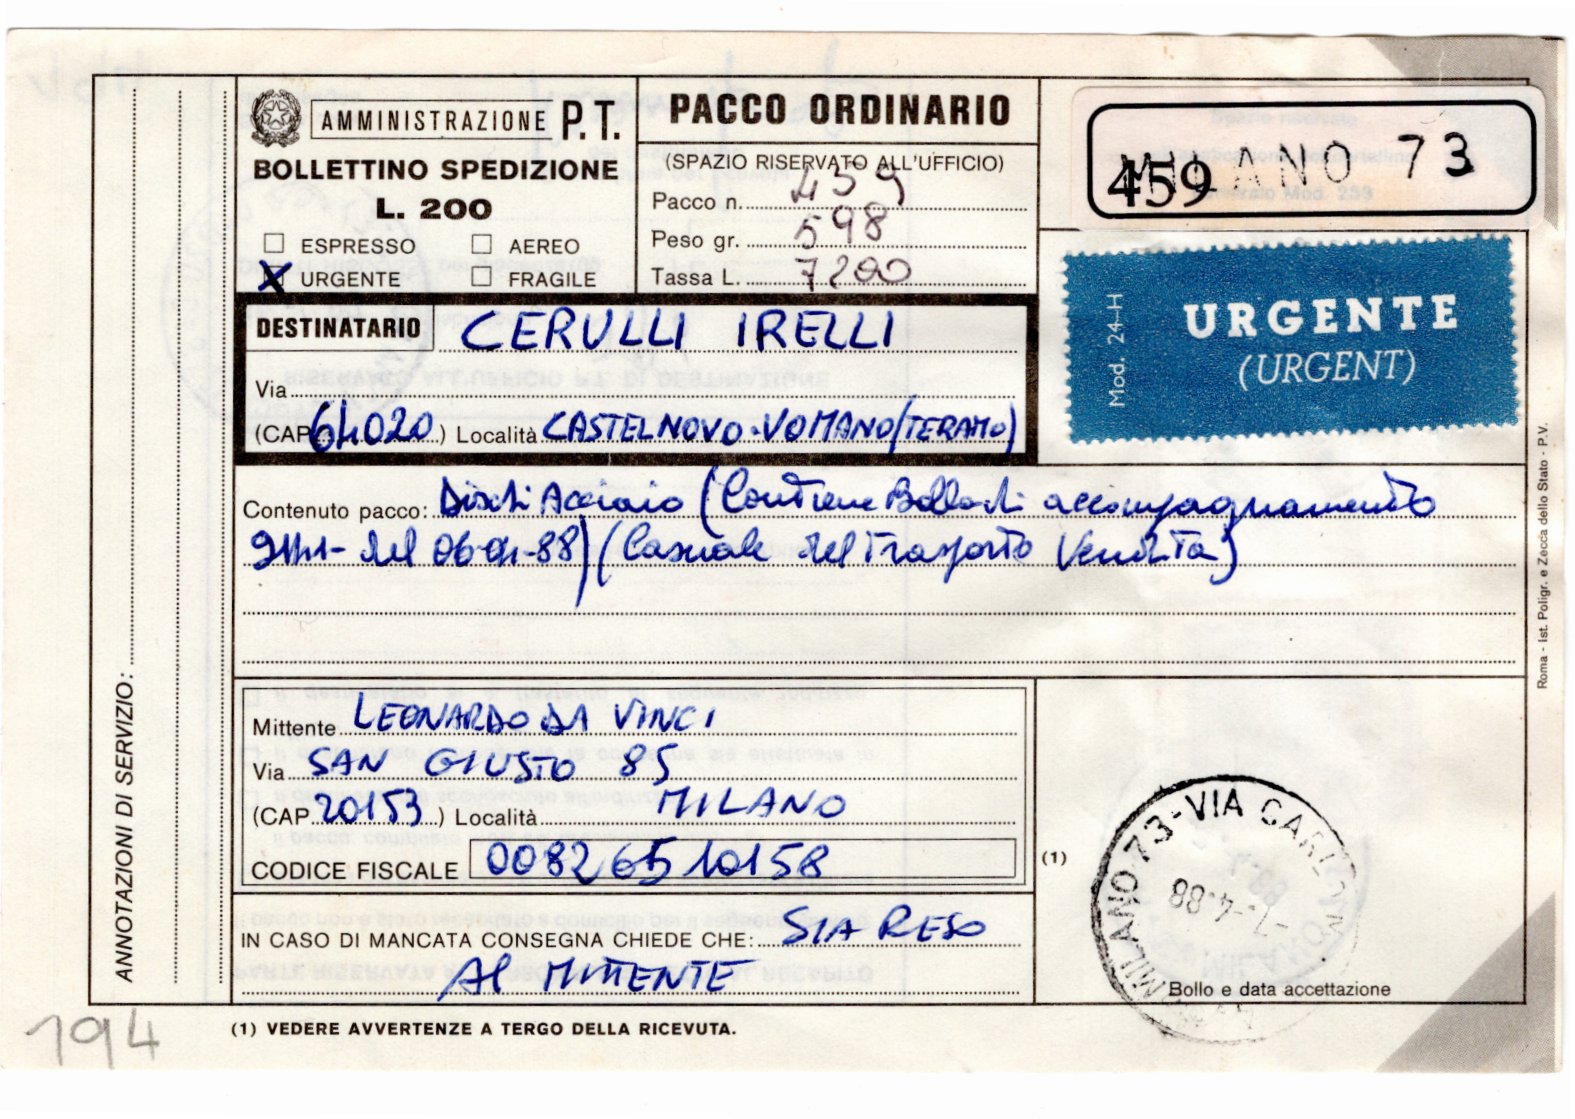 AMMINISTRAZIONE P.T.
BOLLETTINO SPEDIZIONE
L. 200
ESPRESSO AEREO
X URGENTE FRAGILE
PACCO ORDINARIO
(SPAZIO RISERVATO ALL'UFFICIO)
Pacco n. 459
Peso gr. 598
Tassa L. 7200
459 MILANO 73
Mod. 24-H
URGENTE
(URGENT)
DESTINATARIO CERULLI IRELLI
Via
(CAP 64020) Località CASTELNOVO-VOMANO (TERAMO)
Contenuto pacco: Dischi Acciaio (Contiene Bolla di accompagnamento
del 06-04-88) (Casuale del Trasporto Vendita)
Mittente LEONARDO DA VINCI
Via SAN GIUSTO 85
(CAP 20153) Località MILANO
CODICE FISCALE 00826510158
IN CASO DI MANCATA CONSEGNA CHIEDE CHE: SIA RESO
Al MITTENTE
(1)
MILANO 73-VIA
-7.-4.88
Bollo e data accettazione
ANNOTAZIONI DI SERVIZIO:
Roma - Ist. Poligr. e Zecca dello Stato - P.V.
(1) VEDERE AVVERTENZE A TERGO DELLA RICEVUTA.
194